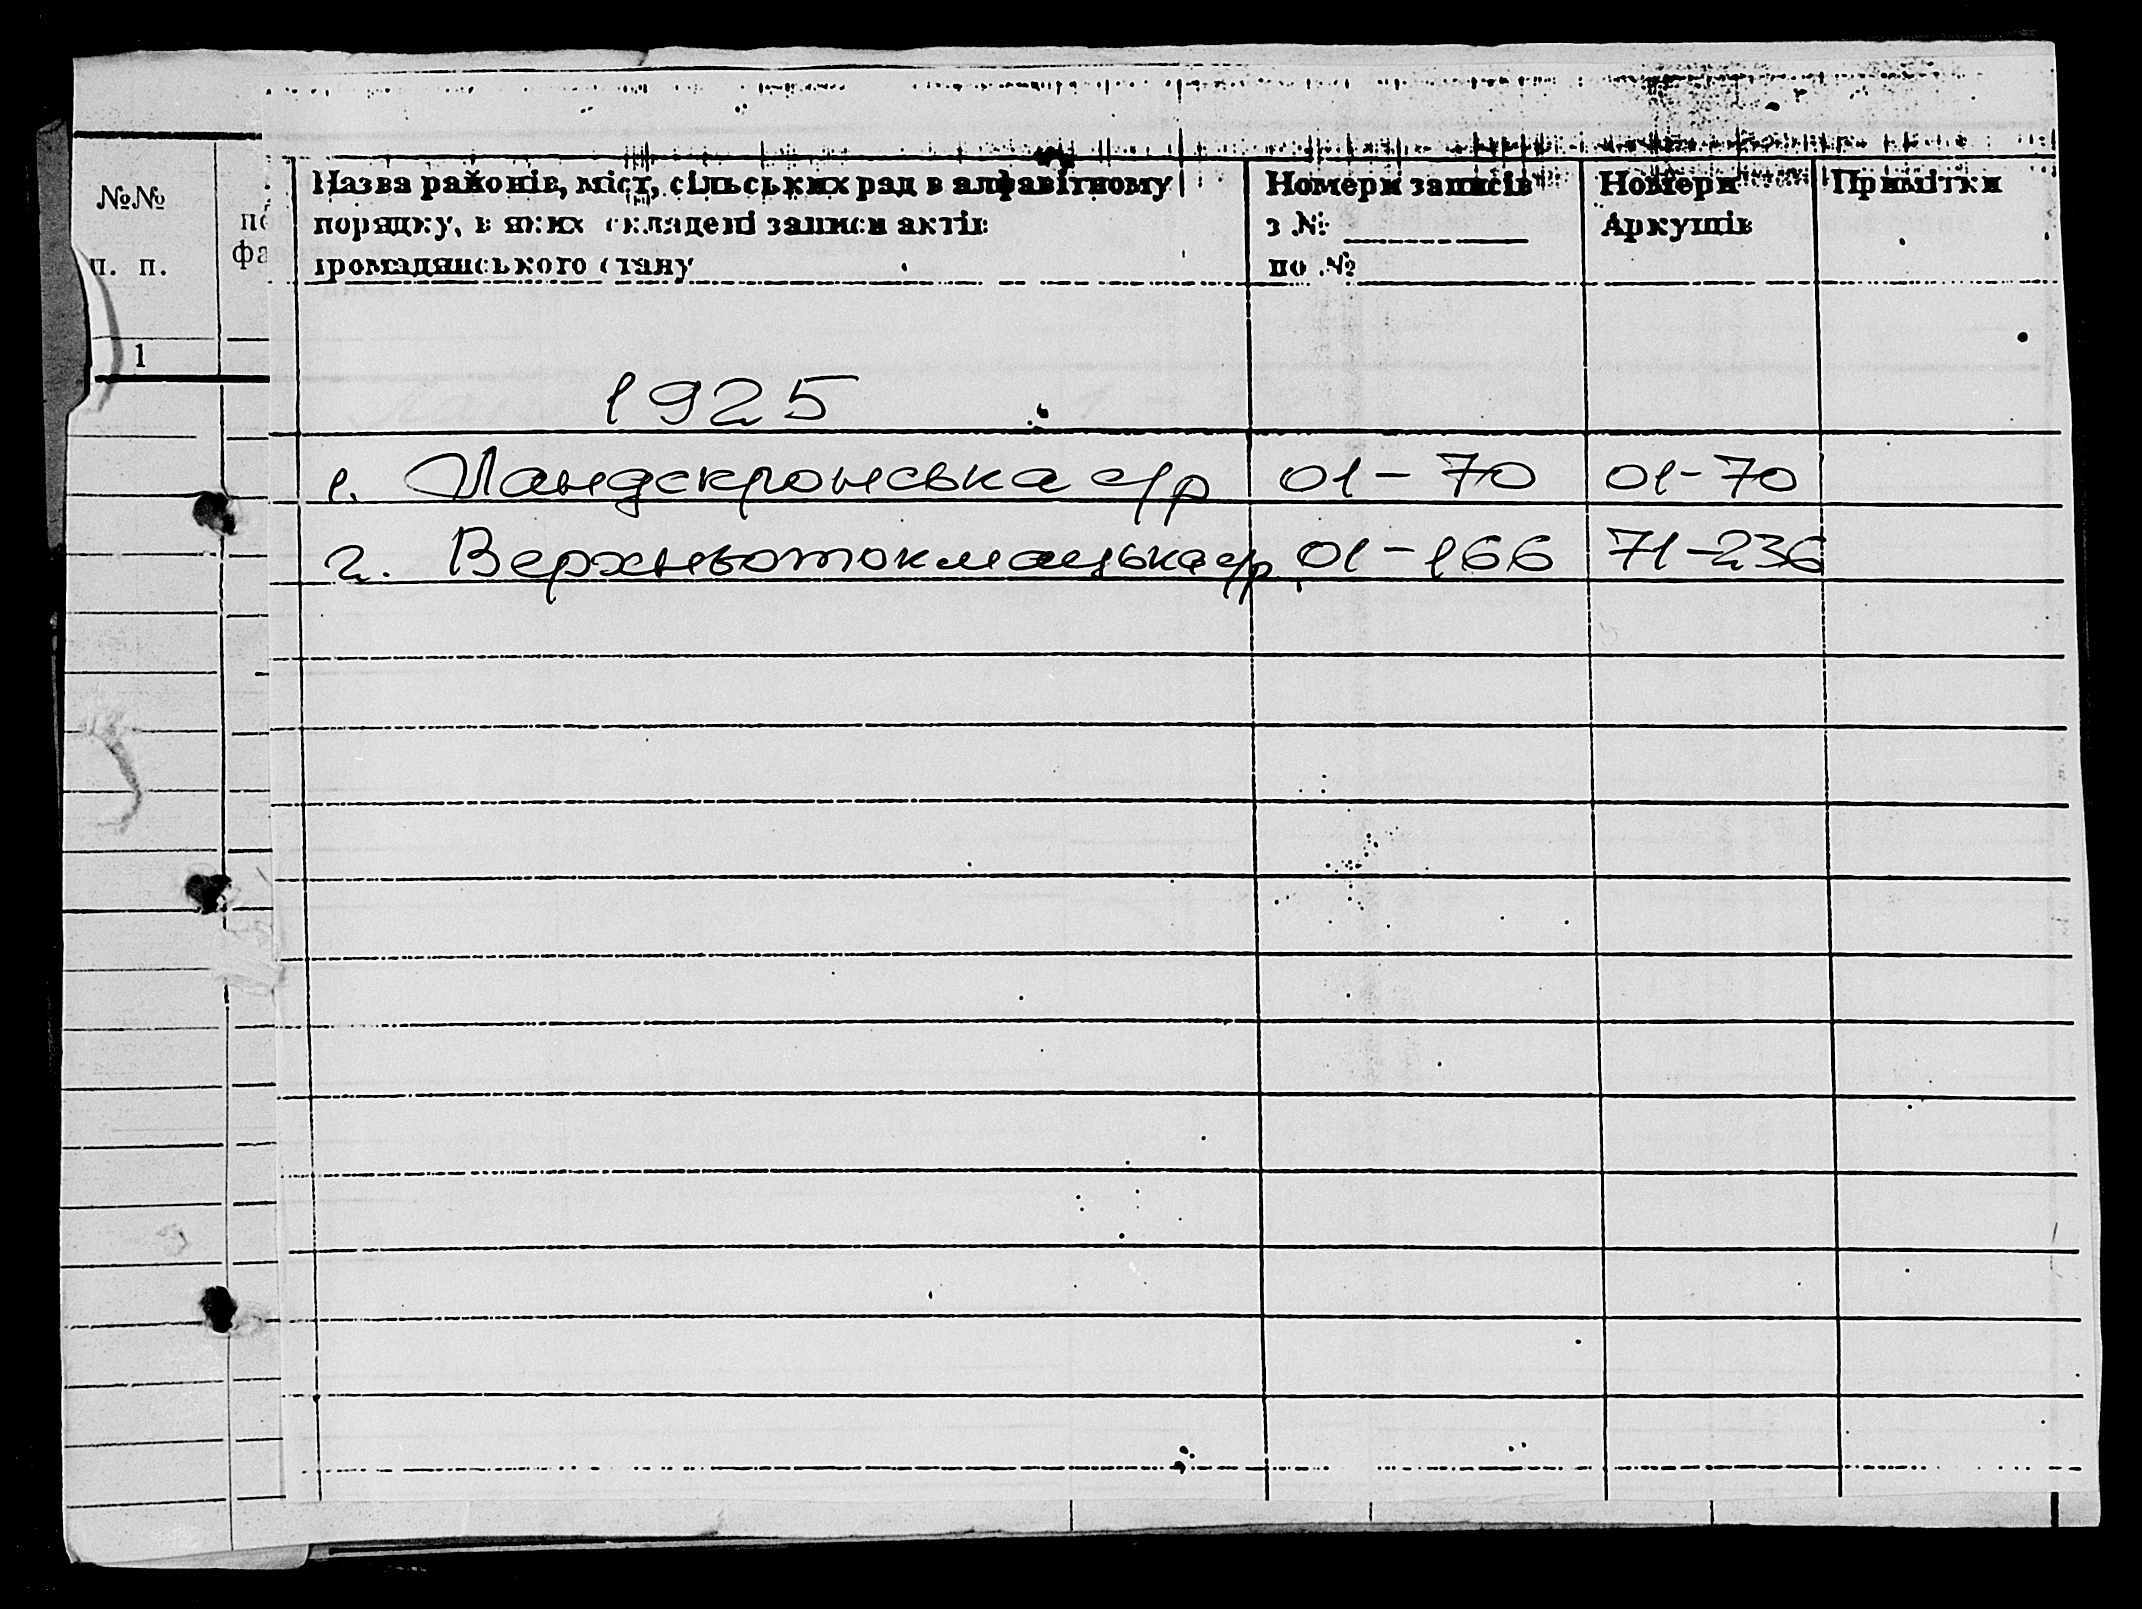 №№
п. п.
1
по
фа
Назва районів, міст, сільських рад в алфавітному
порядку, в яких складені записи актів
громадянського стану
Номери записів
з №
по №
Номери
Аркушів
Примітки
1925
1. Ландскронська с/р 01-70 01-70
2. Верхньотокмацька с/р 01-166 71-236